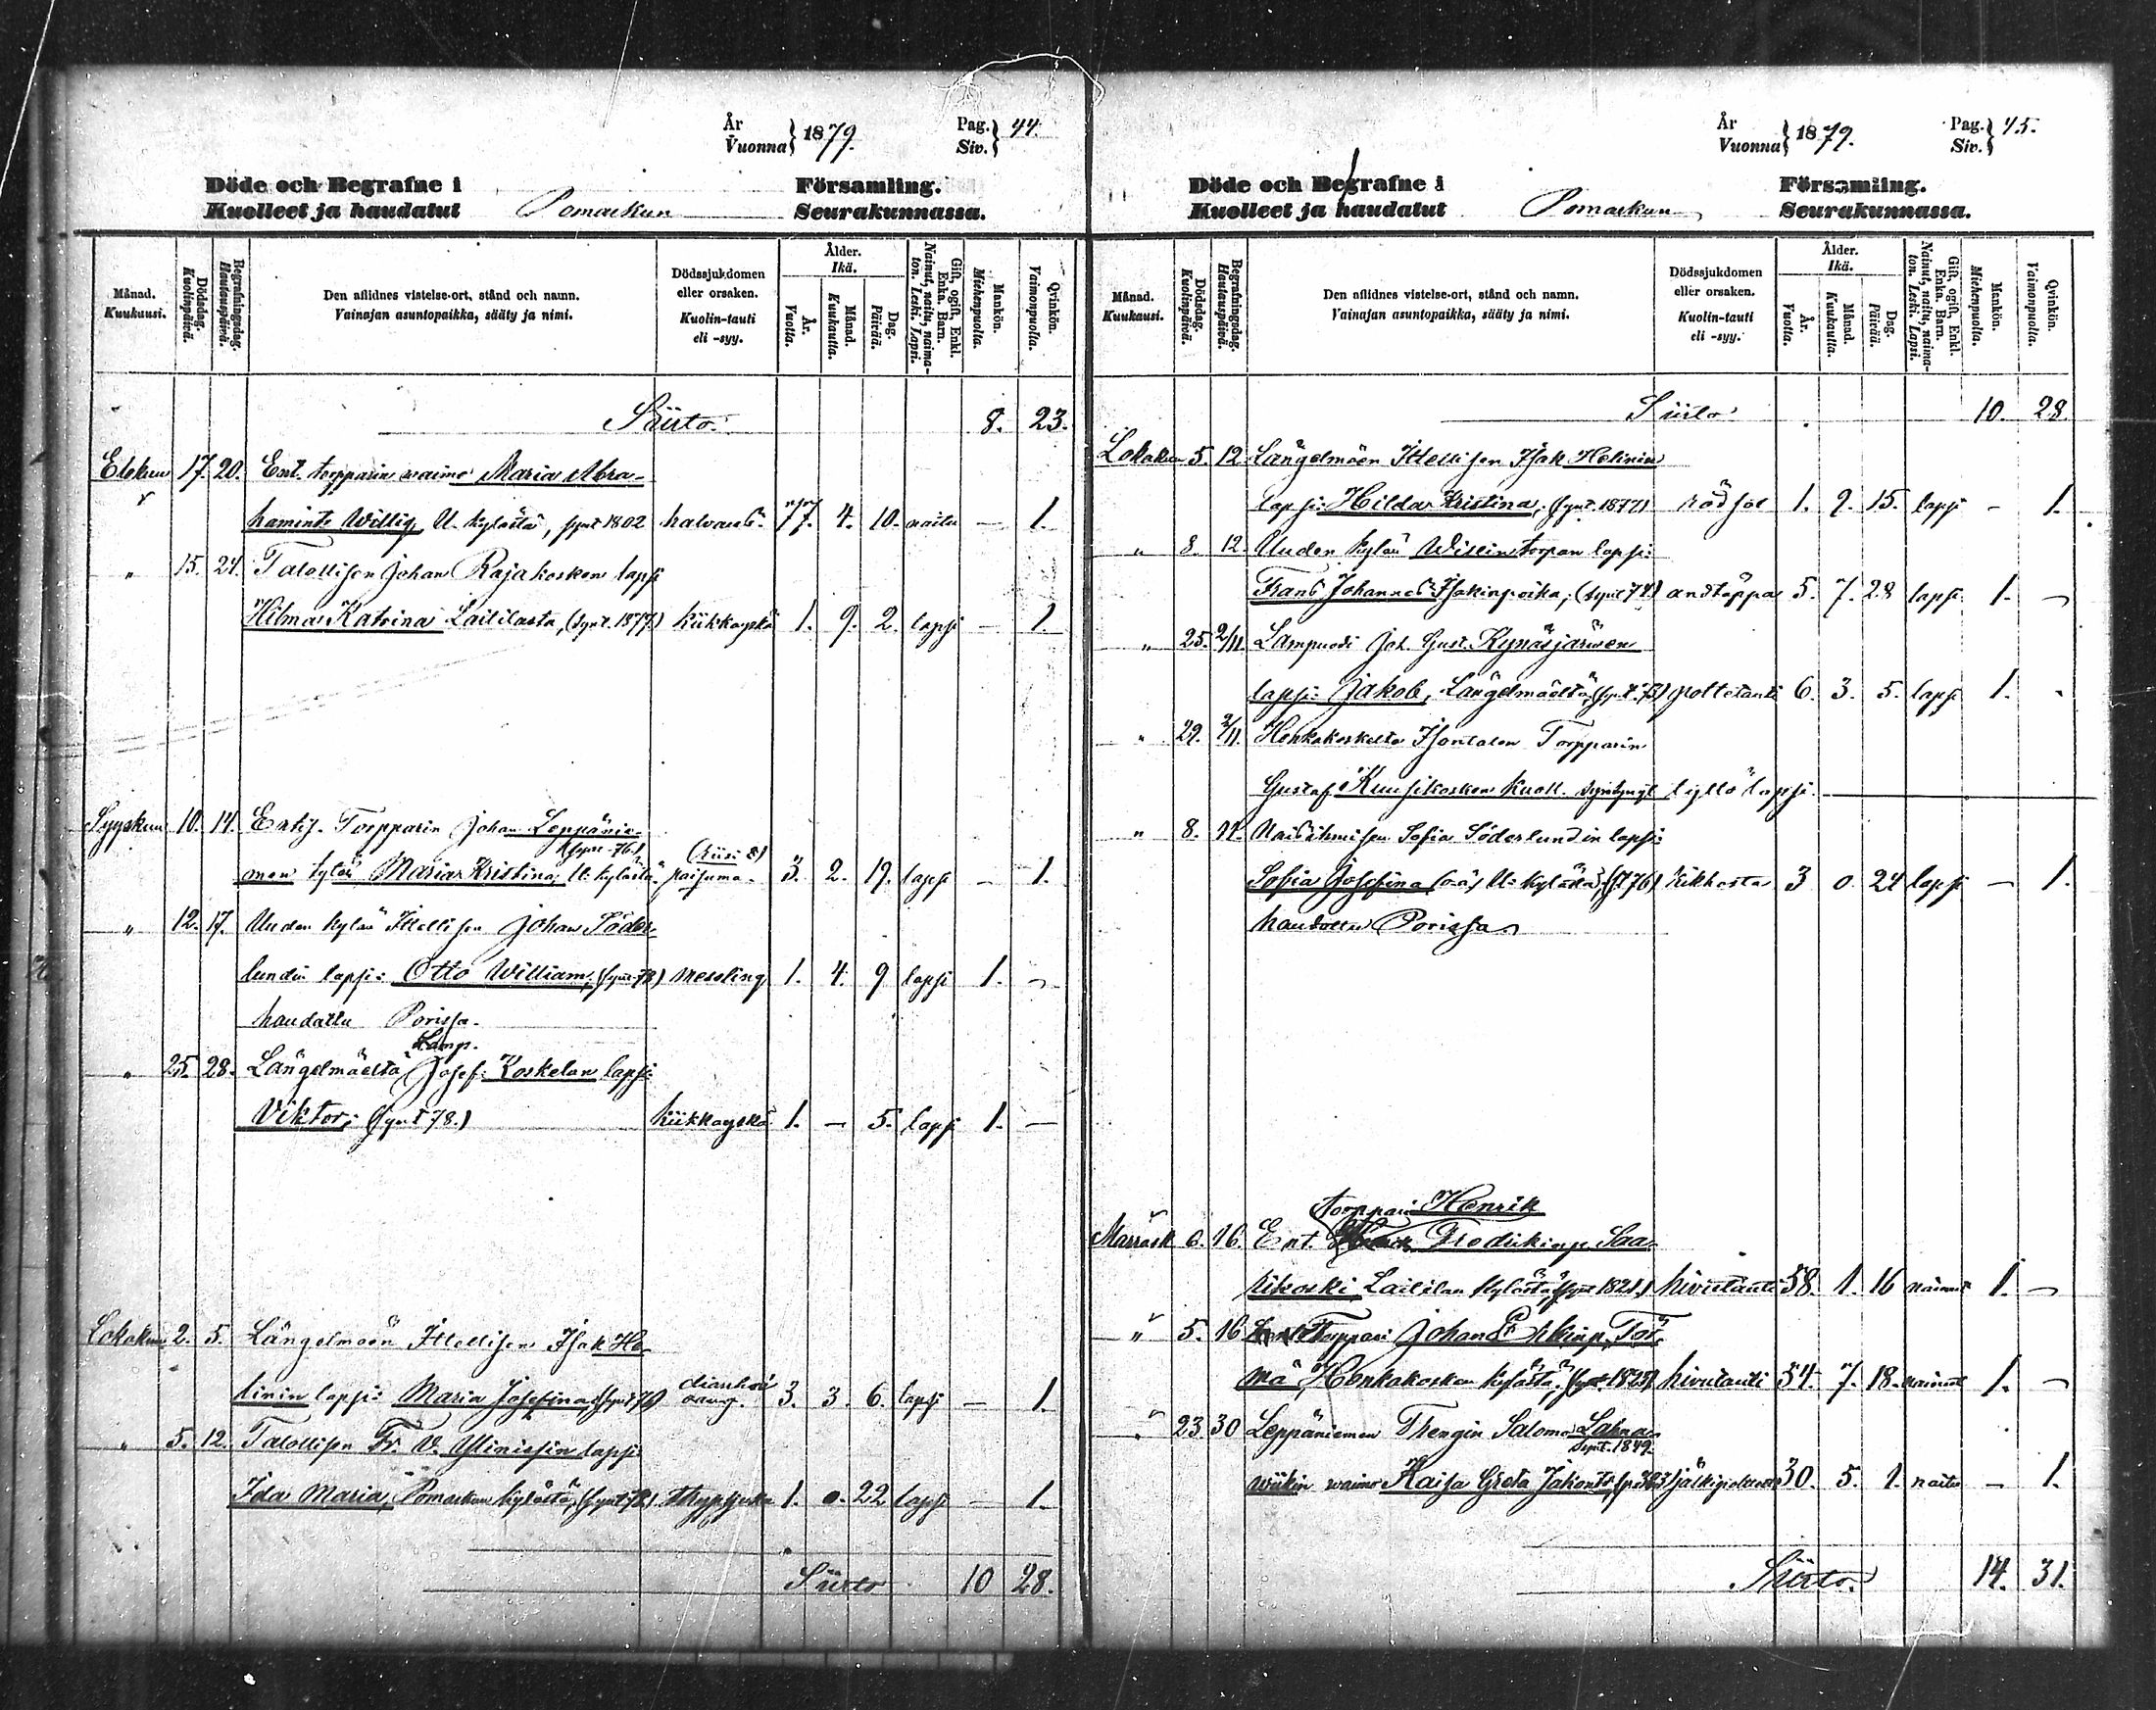 År
Vuonna } 1879. Pag.
Siv. } 44.
Döde och Begrafne i Församling.
Kuolleet ja haudatut Pomarkun Seurakunnassa.
Månad.
Kuukausi.
Dödsdag.
Kuolinpäivä.
Begrafningsdag.
Hautauspäivä.
Den aflidnes vistelse-ort, stånd och namn.
Vainajan asuntopaikka, sääty ja nimi.
Dödssjukdomen
eller orsaken.
Kuolin-tauti
eli -syy.
Ålder.
Ikä.
År.
Vuotta.
Månad.
Kuukautta.
Dag.
Päivää.
Gift, ogift, Enkl.
Enka. Barn.
Nainut, naitu, naima-
ton. Leski. Lapsi.
Mankön.
Miehenpuolta.
Qvinkön.
Vaimonpuolta.
Siirto. 8. 23.
Elokuu 17. 20. Ent. torpparin waimo Maria Abra-
hamint. Willig U. kylästä, synt 1802 halvaus 77. 4. 10. naitu — 1.
" 15. 24. Talollisen Johan Rajakosken lapsi
Hilma Katrina Laililasta, (synt. 1877.) kiikkayskä 1. 9. 2. lapsi — 1.
Syyskuu 10. 14. Entis. Torpparin Johan Leppänie-
(synt -76.)
men tytär Maria Kristina, U. kylästä. paisuma. 3. 2. 19. lapsi — 1.
" 12. 17. Uuden kylän Itsellisen Johan Söder-
lundin lapsi: Otto William, (synt -78) messling 1. 4. 9 lapsi 1. —
haudattu Porissa.
Lamp.
" 25. 28. Längelmäeltä Josef Koskelan lapsi:
Viktor, (synt 78.) kiikkayskä 1. — 5. lapsi 1. —
Lokakuu 2. 5. Längelmäen Itsellisen Isak He-
linin lapsi: Maria Josefina, (synt 76) 3. 3. 6. lapsi — 1.
" 5. 12. Talollisen Fr. V. Ylinissin lapsi
Ida Maria, Pomarkun kylästä, (synt 78) 1. 0. 22 lapsi — 1.
Siirto 10 28.
År
Vuonna } 1879. Pag.
Siv. } 45.
Döde och Begrafne i Församling.
Kuolleet ja haudatut Pomarkun Seurakunnassa.
Månad.
Kuukausi.
Dödsdag.
Kuolinpäivä.
Begrafningsdag.
Hautauspäivä.
Den aflidnes vistelse-ort, stånd och namn.
Vainajan asuntopaikka, sääty ja nimi.
Dödssjukdomen
eller orsaken.
Kuolin-tauti
eli -syy.
Ålder.
Ikä.
År.
Vuotta.
Månad.
Kuukautta.
Dag.
Päivää.
Gift, ogift, Enkl.
Enka. Barn.
Nainut, naitu, naima-
ton. Leski. Lapsi.
Mankön.
Miehenpuolta.
Qvinkön.
Vaimonpuolta.
Siirto 10. 28.
Lokakuu 5. 12. Längelmäen Itsellisen Isak Helinin
lapsi: Hilda Kristina, (synt. 1877) rödsot 1. 9. 15. lapsi — 1.
" 8. 12. Uuden kylän Wissin torpan lapsi:
Frans Johannes Isakinpoika, (synt 74) andtäppa 5. 7. 28 lapsi 1. —
" 25. 2/11. Lampuodi Joh. Gust. Kynäsjärwen
lapsi: Jakob, Längelmäeltä, (synt. 73) polttotauti 6. 3. 5. lapsi 1. -
" 29. 2/11. Honkakoskelta Isontalon Torpparin
Gustaf Kuusikosken kuoll. syntynyt tyttö lapsi.
" 8. 11. Naisihmisen Sofia Söderlundin lapsi:
Sofia Josefina U. kylästä, (s. 76) 3 0 24 lapsi — 1.
haudattu Porissa
torppari Henrik
Marrask 6. 16. Ent. Fredrikinp. Saa-
rikoski Laililan kylästä, (synt 1821) kivutauti 58. 1. 16 nainut 1. —
" 5. 16 Torppari Johan Erkinp. Tor-
mä Honkakosken kylästä, (synt. 1825) kivutauti 54. 7. 18. nainut 1. —
" 23. 30 Leppäniemen Thengin Salomo Lahna-
Synt. 1849.
wiikin waimo Kaisa Greta Jakontr. 30. 5. 1. naitu — 1.
Siirto. 14. 31.